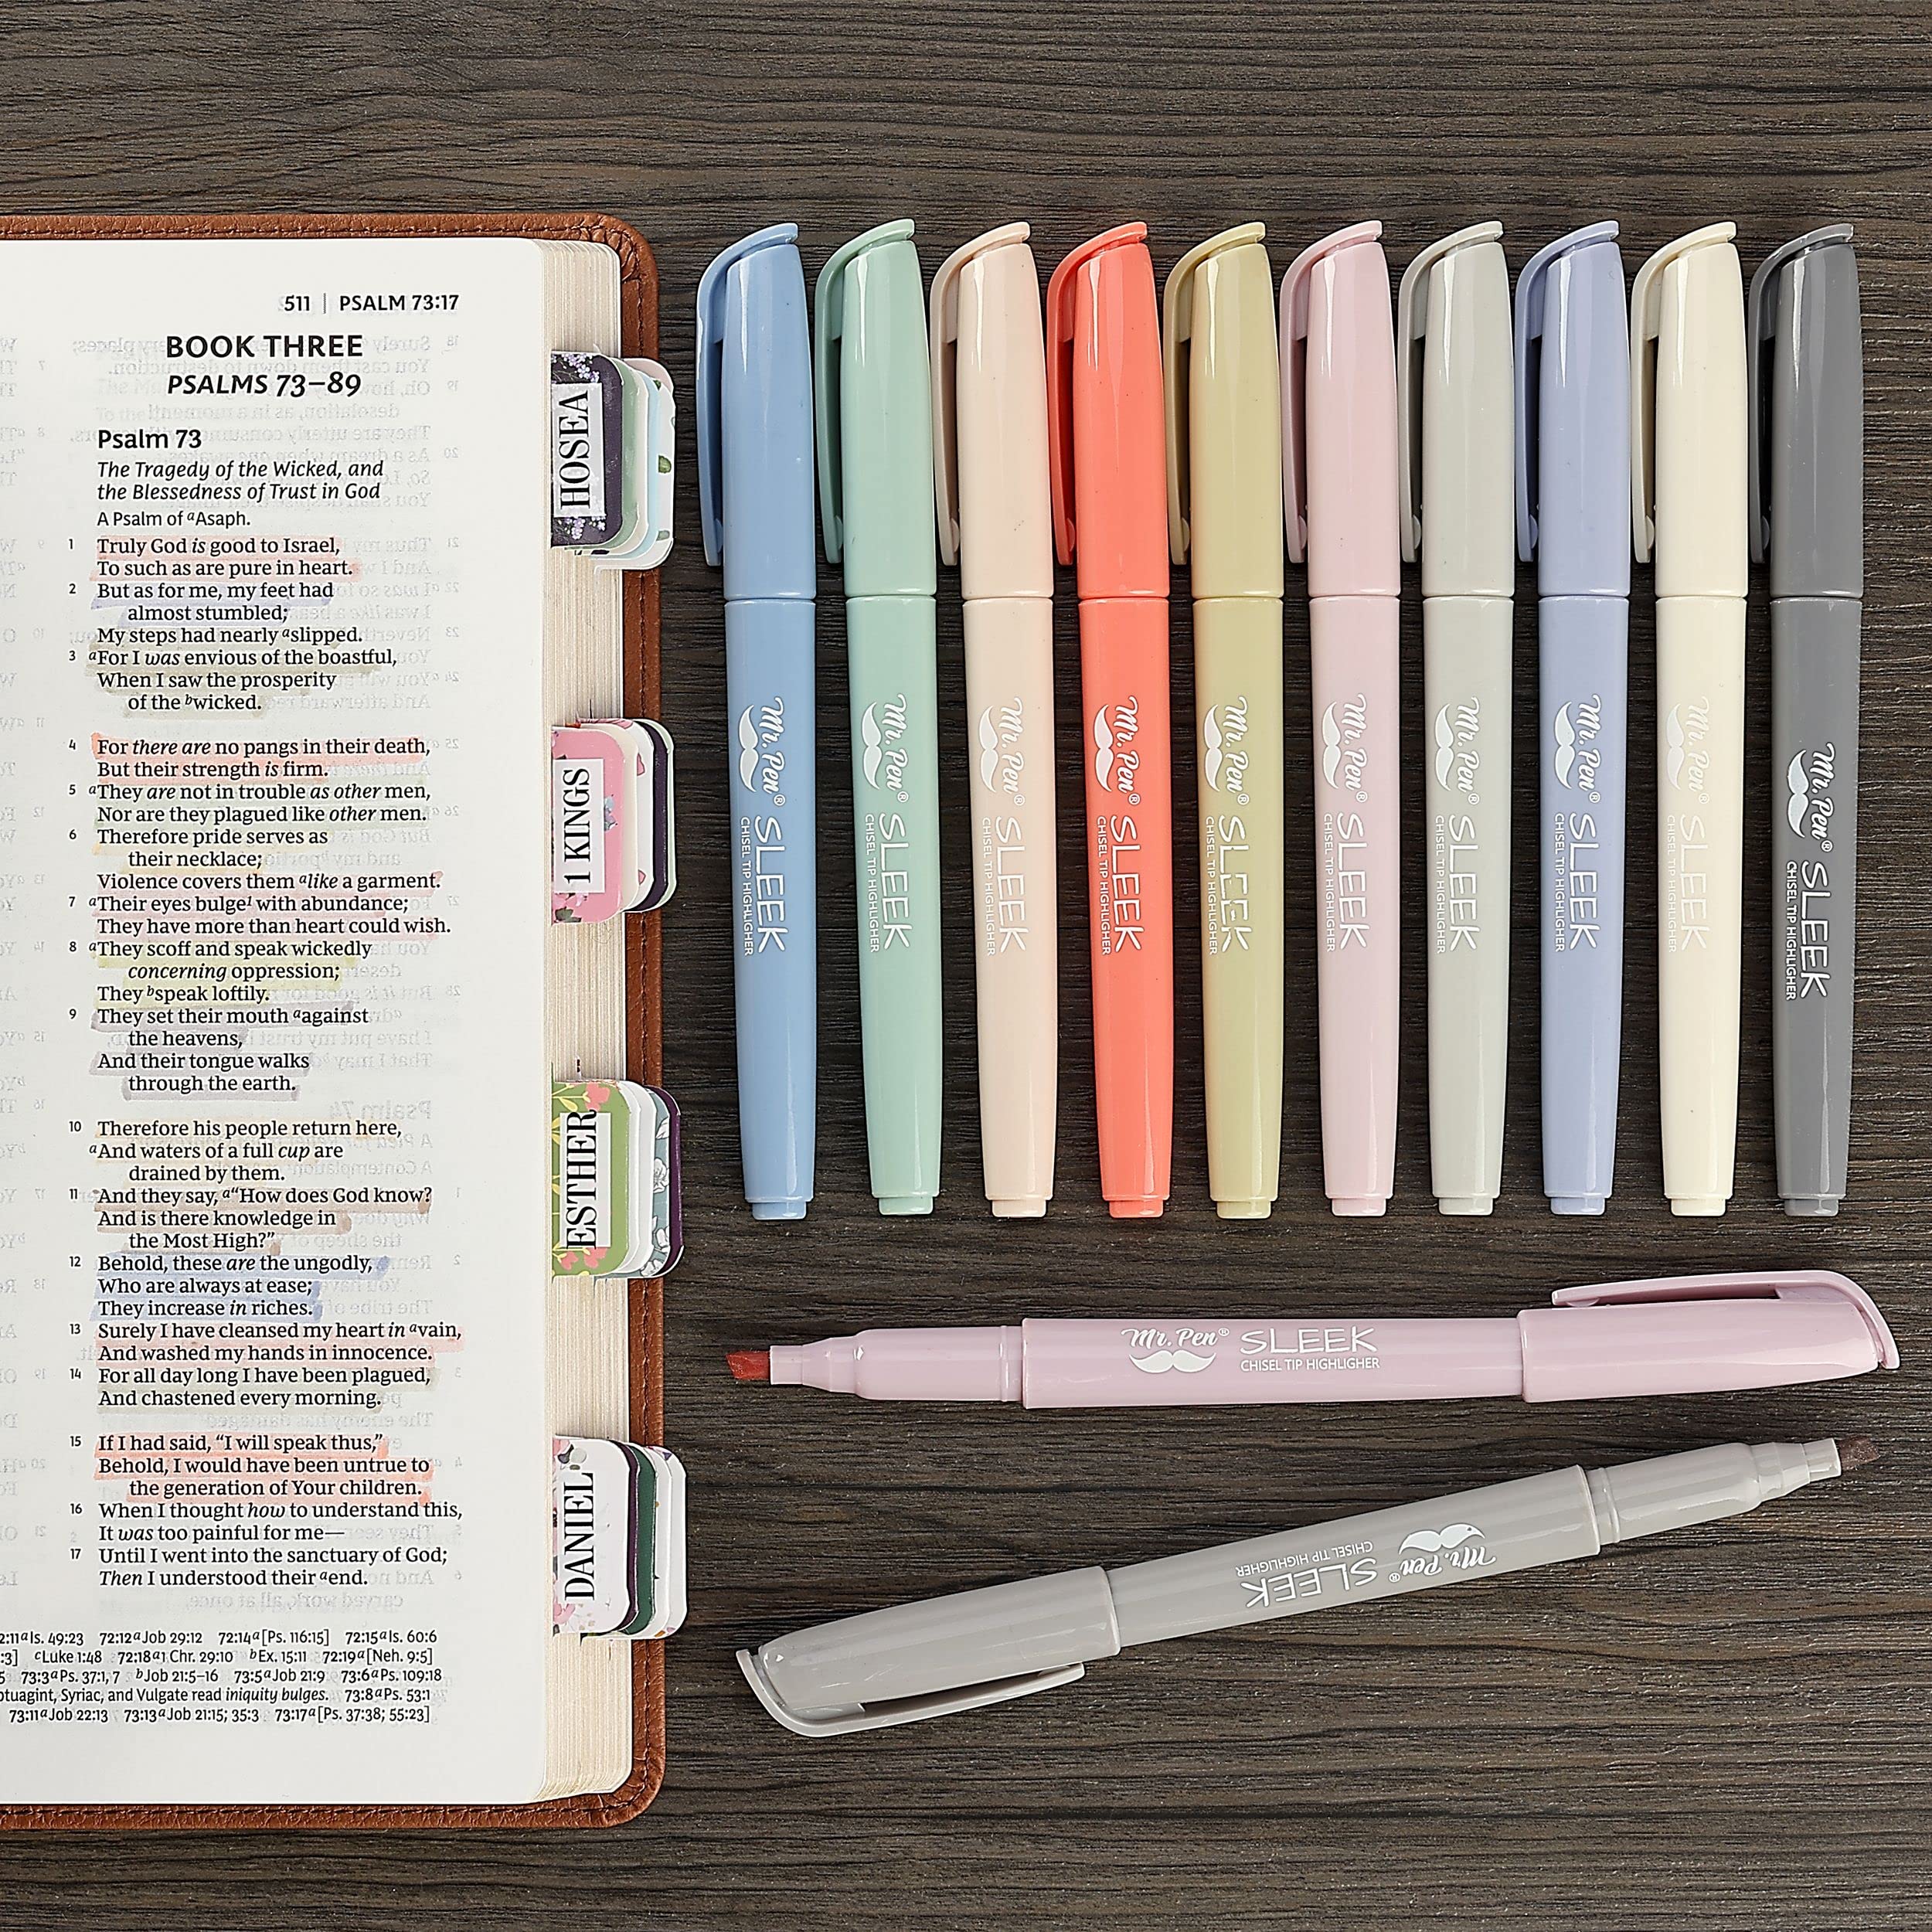 511 | PSALM 73:17
BOOK THREE
PSALMS 73–89
Psalm 73
The Tragedy of the Wicked, and
the Blessedness of Trust in God
A Psalm of aAsaph.
1 Truly God is good to Israel,
To such as are pure in heart.
2 But as for me, my feet had
almost stumbled;
My steps had nearly aslipped.
3 aFor I was envious of the boastful,
When I saw the prosperity
of the bwicked.
4 For there are no pangs in their death,
But their strength is firm.
5 aThey are not in trouble as other men,
Nor are they plagued like other men.
6 Therefore pride serves as
their necklace;
Violence covers them alike a garment.
7 aTheir eyes bulge1 with abundance;
They have more than heart could wish.
8 aThey scoff and speak wickedly
concerning oppression;
They bspeak loftily.
9 They set their mouth aagainst
the heavens,
And their tongue walks
through the earth.
10 Therefore his people return here,
aAnd waters of a full cup are
drained by them.
11 And they say, a“How does God know?
And is there knowledge in
the Most High?”
12 Behold, these are the ungodly,
Who are always at ease;
They increase in riches.
13 Surely I have cleansed my heart in avain,
And washed my hands in innocence.
14 For all day long I have been plagued,
And chastened every morning.
15 If I had said, “I will speak thus,”
Behold, I would have been untrue to
the generation of Your children.
16 When I thought how to understand this,
It was too painful for me—
17 Until I went into the sanctuary of God;
Then I understood their aend.
2:11 aIs. 49:23 72:12 aJob 29:12 72:14 a[Ps. 116:15] 72:15 aIs. 60:6
:3] cLuke 1:48 72:18 a1 Chr. 29:10 bEx. 15:11 72:19 a[Neh. 9:5]
5 73:3 aPs. 37:1, 7 bJob 21:5–16 73:5 aJob 21:9 73:6 aPs. 109:18
ptuagint, Syriac, and Vulgate read iniquity bulges. 73:8 aPs. 53:1
73:11 aJob 22:13 73:13 aJob 21:15; 35:3 73:17 a[Ps. 37:38; 55:23]
HOSEA
1 KINGS
ESTHER
DANIEL
Mr. Pen® SLEEK
CHISEL TIP HIGHLIGHER
Mr. Pen® SLEEK
CHISEL TIP HIGHLIGHER
Mr. Pen® SLEEK
CHISEL TIP HIGHLIGHER
Mr. Pen® SLEEK
CHISEL TIP HIGHLIGHER
Mr. Pen® SLEEK
CHISEL TIP HIGHLIGHER
Mr. Pen® SLEEK
CHISEL TIP HIGHLIGHER
Mr. Pen® SLEEK
CHISEL TIP HIGHLIGHER
Mr. Pen® SLEEK
CHISEL TIP HIGHLIGHER
Mr. Pen® SLEEK
CHISEL TIP HIGHLIGHER
Mr. Pen® SLEEK
CHISEL TIP HIGHLIGHER
Mr. Pen® SLEEK
CHISEL TIP HIGHLIGHER
Mr. Pen® SLEEK
CHISEL TIP HIGHLIGHER